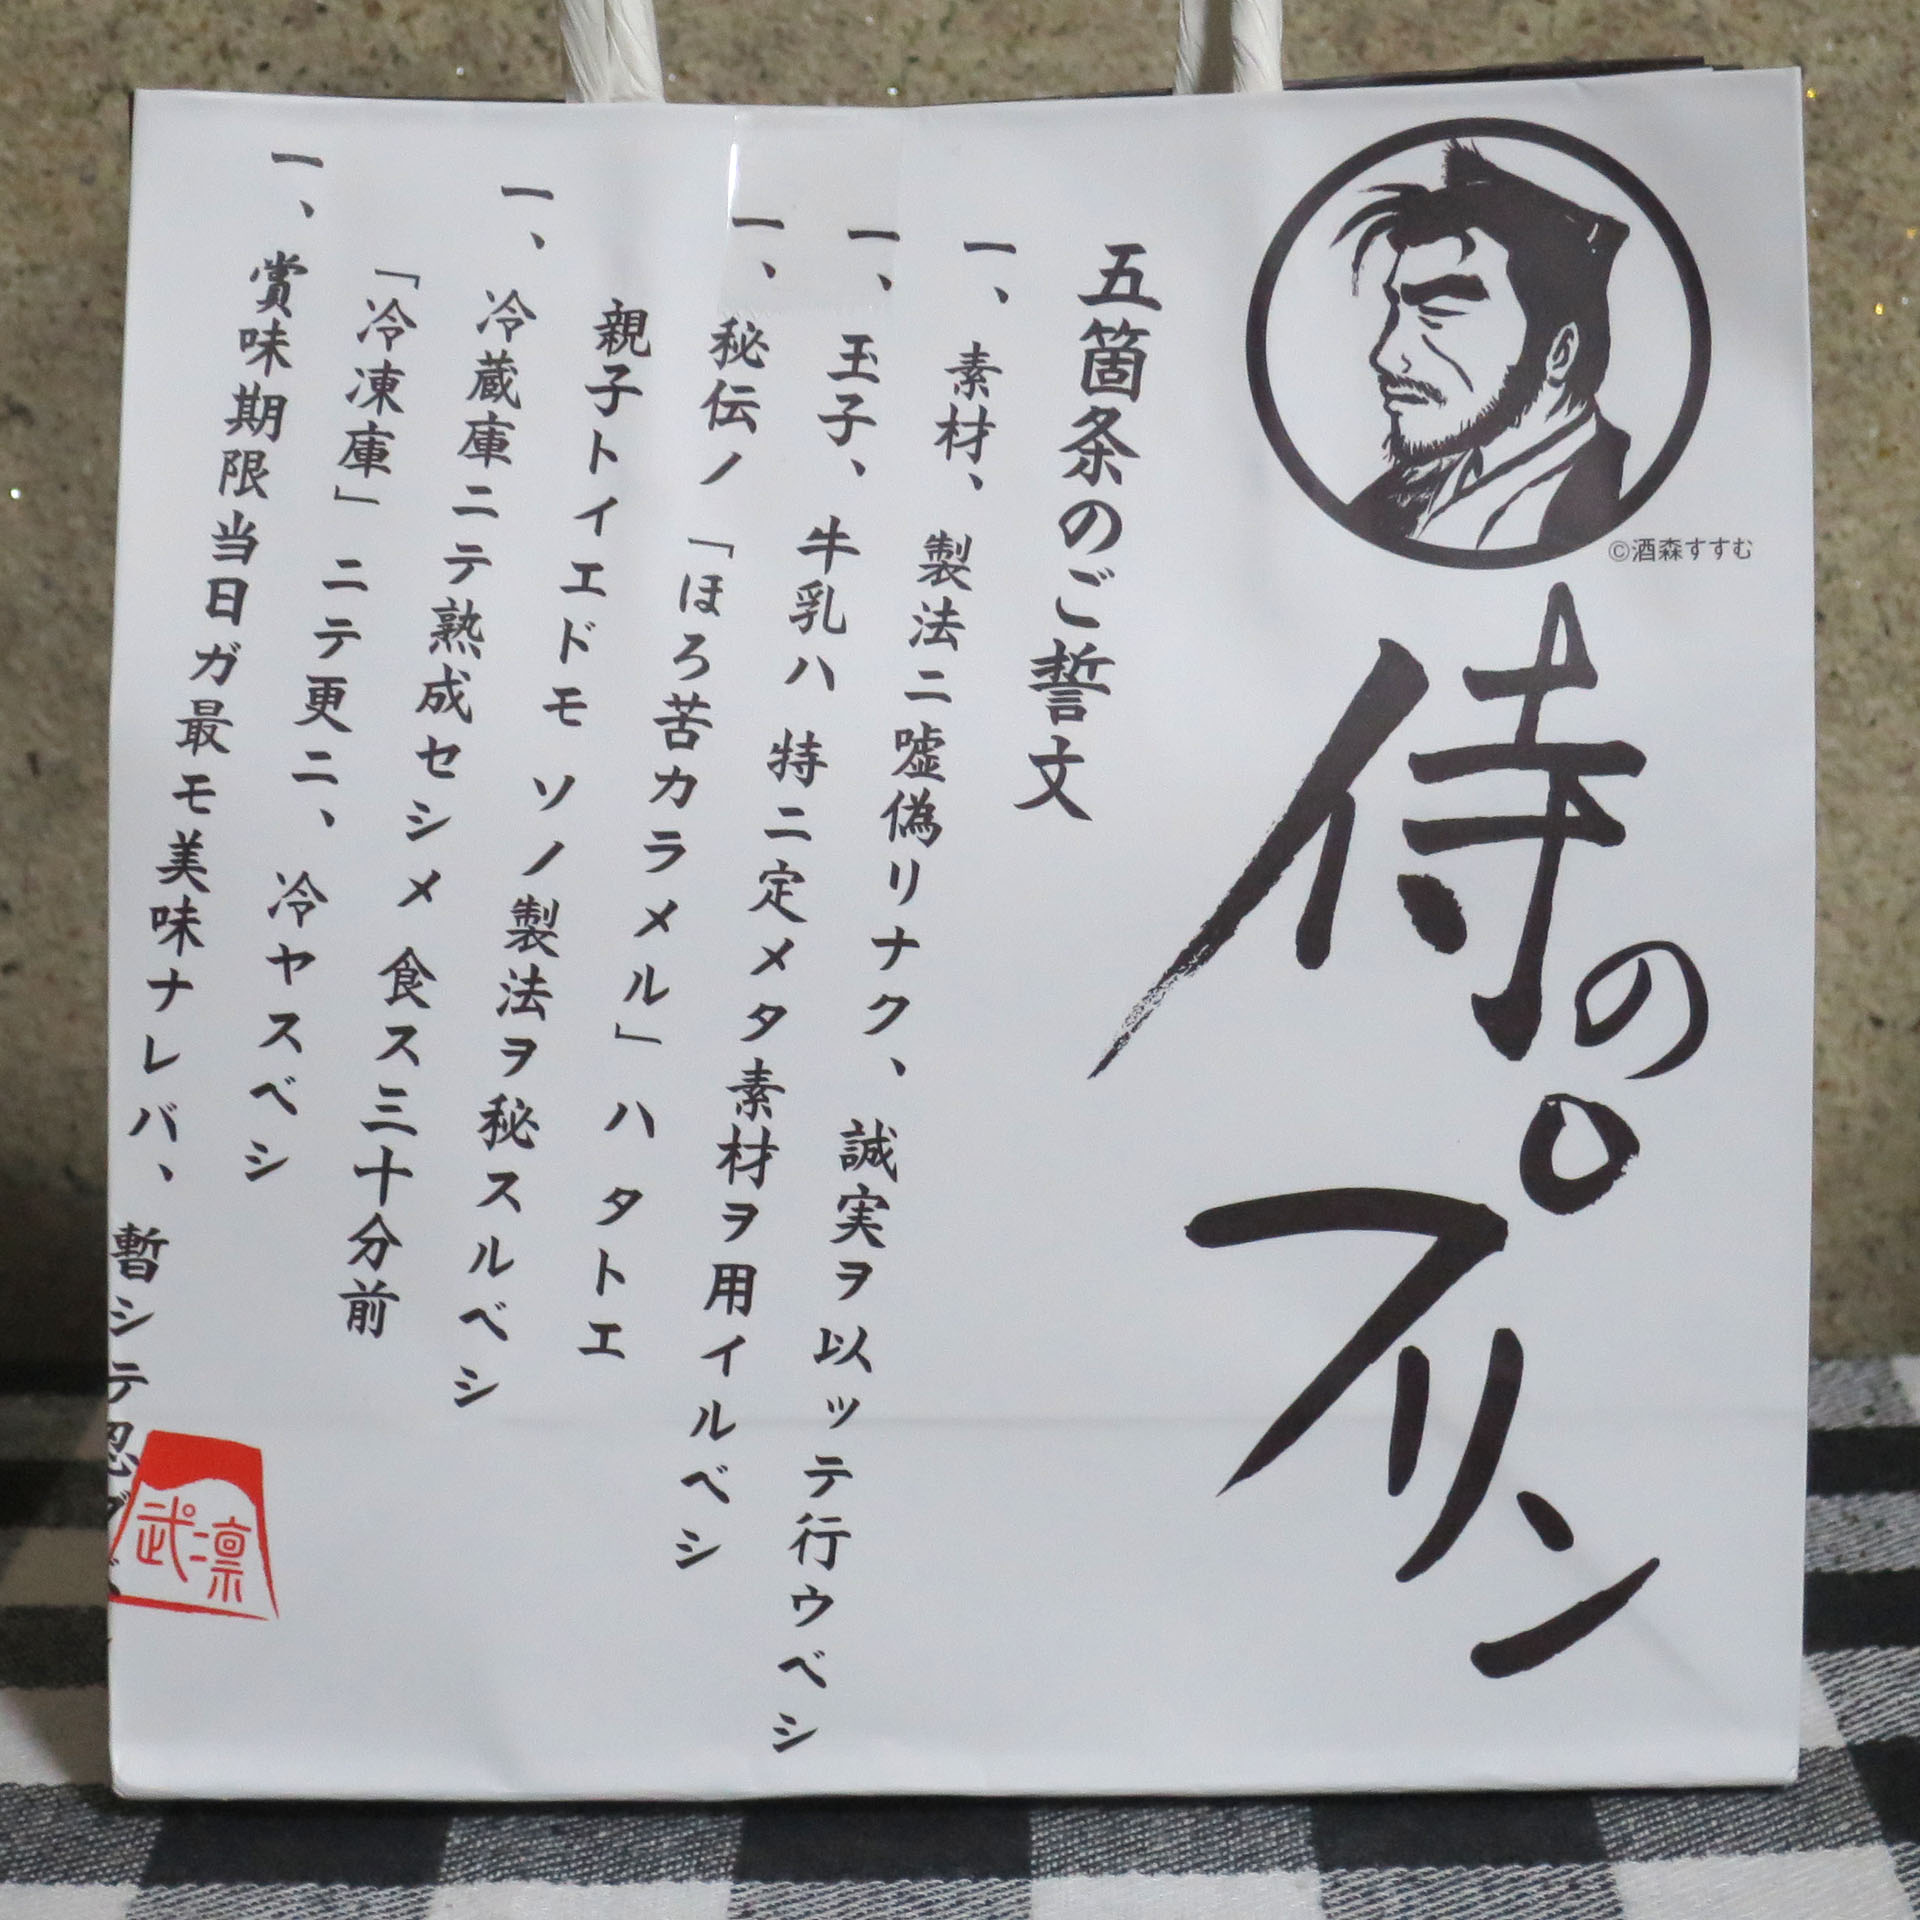 侍のプリン
©酒森すすむ
五箇条のご誓文
一、素材、製法ニ嘘偽リナク、誠実ヲ以ッテ行ウベシ
一、玉子、牛乳ハ 特ニ定メタ素材ヲ用イルベシ
一、秘伝ノ「ほろ苦カラメル」ハ タトエ
親子トイエドモ ソノ製法ヲ秘スルベシ
一、冷蔵庫ニテ熟成セシメ 食ス三十分前
「冷凍庫」ニテ更ニ、冷ヤスベシ
一、賞味期限当日ガ最モ美味ナレバ、暫シテ忍
武凛